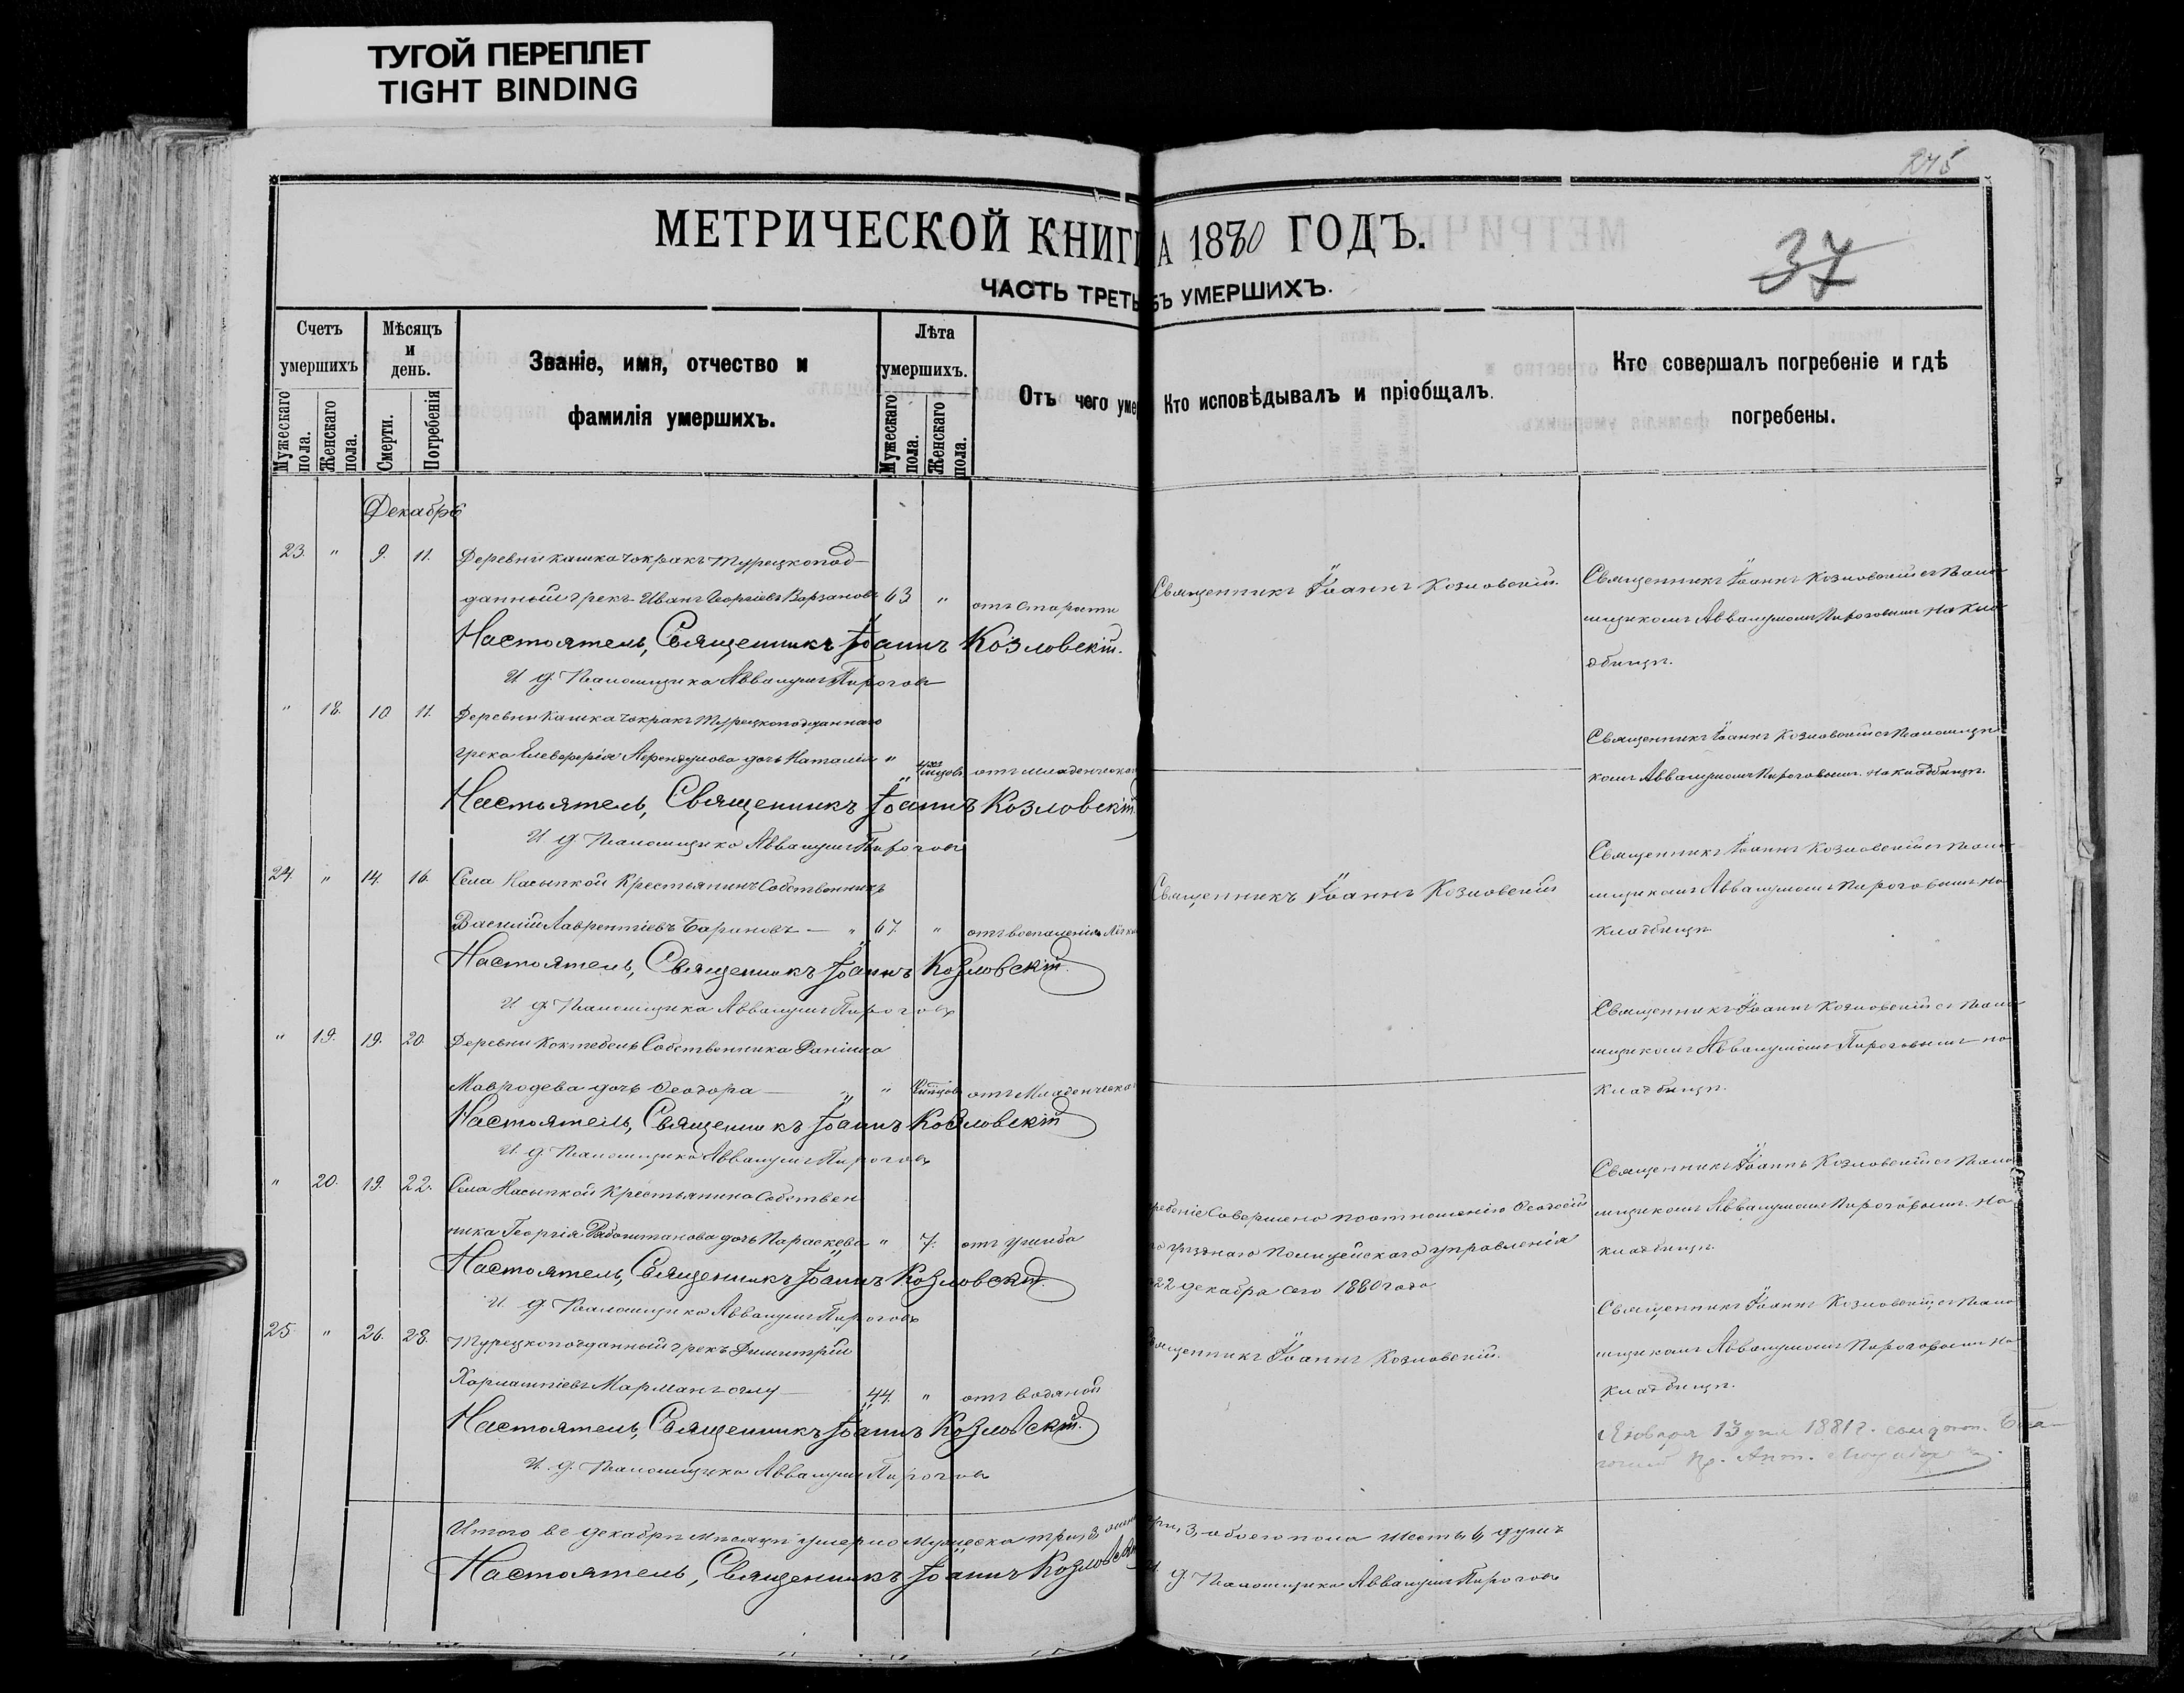 ТУГОЙ ПЕРЕПЛЕТ
TIGHT BINDING
МЕТРИЧЕСКОЙ КНИГИ НА 1880 ГОДЪ.
37
ЧАСТЬ ТРЕТЬ УМЕРШИХЪ.
Счетъ умершихъ
Мужескаго пола.
Женскаго пола.
Мѣсяцъ и день.
Смерти.
Погребенія
Званіе, имя, отчество и фамилія умершихъ.
Лѣта умершихъ.
Мужескаго пола.
Женскаго пола.
Отъ чего уме
Кто исповѣдывалъ и пріобщалъ.
Кто совершалъ погребеніе и гдѣ погребены.
Декабрь
23. " 9. 11. Деревни Кашка Чокракъ Турецкопод-
данный грекъ Иванъ Георгіевъ 63 " отъ старости
Священникъ Іоаннъ Козловскій.
Священникъ Іоаннъ Козловскій съ Псало
мщикомъ Аввакумомъ Пироговымъ на Кла
дбищѣ.
Настоятель, Священникъ Іоаннъ Козловскій.
И. д. Псаломщика Аввакумъ Пироговъ
" 18. 10 11. Деревни Кашка Чокракъ Турецкоподданнаго
грека Елевферія дочь Наталія " отъ младенческой
Священникъ Іоаннъ Козловскій съ Псаломщи
комъ Аввакумомъ Пироговымъ. на кладбищѣ.
Настоятель, Священникъ Іоаннъ Козловскій.
И. д. Псаломщика Аввакумъ Пироговъ
24. " 14. 16. Села Насыпкой Крестьянинъ Собственникъ
Василій Лаврентіевъ Барановъ — " 67. " отъ воспаленія лёгк
Священникъ Іоаннъ Козловскій
Священникъ Іоаннъ Козловскій съ Псало
мщикомъ Аввакумомъ Пироговымъ на
кладбищѣ
Настоятель, Священникъ Іоаннъ Козловскій.
И. д. Псаломщика Аввакумъ Пироговъ
" 19. 19. 20. Деревни Коктебель Собственника
Мавродева дочь Ѳеодора — " " отъ Младенческой
Священникъ Іоаннъ Козловскій съ Псало
мщикомъ Аввакумомъ Пироговымъ на
кладбищѣ.
Настоятель, Священникъ Іоаннъ Козловскій
И. д. Псаломщика Аввакумъ Пироговъ
" 20. 19. 22. Села Насыпкой Крестьянина Собствен
ника Георгія дочь Параскева " 7. отъ ушиба
ребеніе Совершено по отношенію Ѳеодосій
уѣзднаго Полицейскаго управленія
22 декабря сего 1880 года
Священникъ Іоаннъ Козловскій съ Псало
мщикомъ Аввакумомъ Пироговымъ. на
кладбищѣ.
Настоятель, Священникъ Іоаннъ Козловскій.
И. д. Псаломщика Аввакумъ Пироговъ
25. " 26. 28. Турецкоподданный грекъ Димитрій
Харлампіевъ 44. " отъ водяной
ященникъ Іоаннъ Козловскій.
Священникъ Іоаннъ Козловскій съ Псало
мщикомъ Аввакумомъ Пироговымъ на
кладбищѣ.
Настоятель, Священникъ Іоаннъ Козловскій.
И. д. Псаломщика Аввакумъ Пироговъ
Января 13 дня 1881 г.
Итого въ декабрѣ мѣсяцѣ умерло Мужеска три, 3, три, 3, обоего пола шесть, 6, душъ
Настоятель, Священникъ Іоаннъ Козловскій
И. д. Псаломщика Аввакумъ Пироговъ